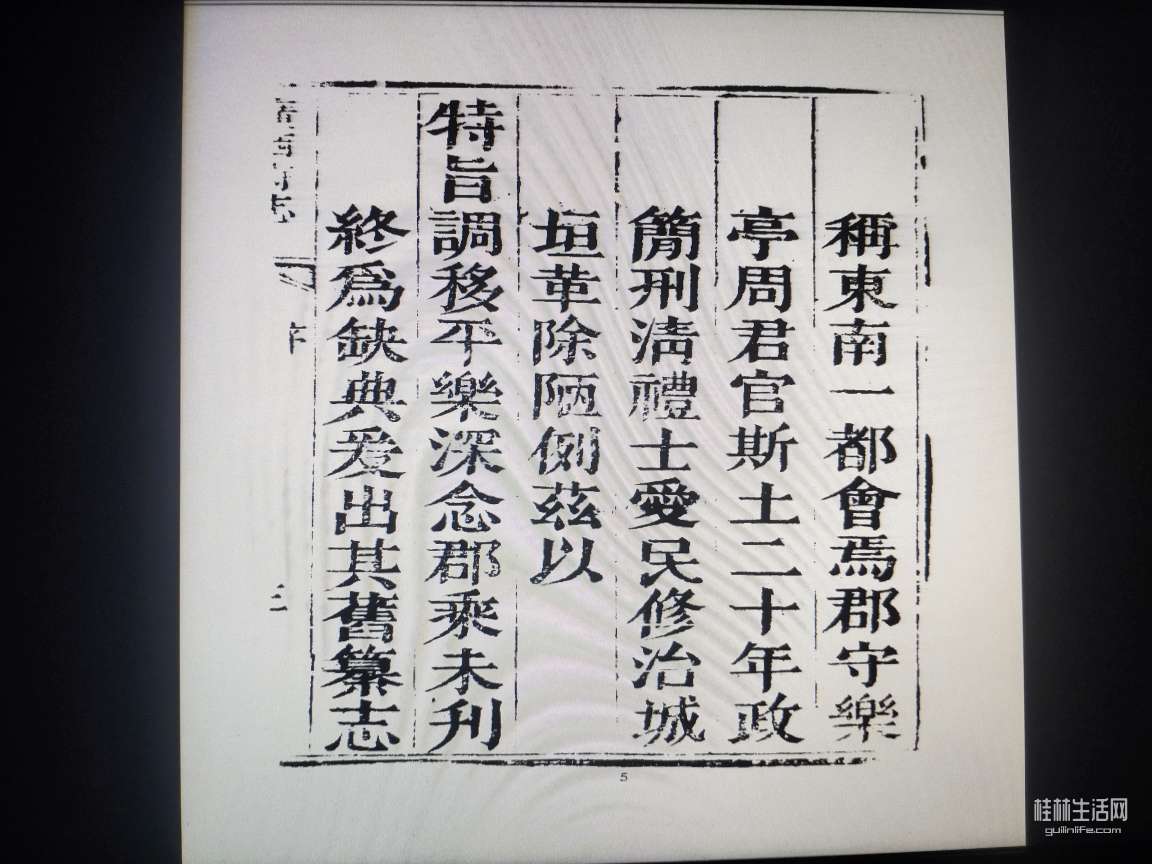 稱東南一都會焉郡守樂
亭周君官斯土二十年政
簡刑淸禮士愛民修治城
垣革除陋例茲以
特旨調移平樂深念郡乘未刋
終爲缺典爰出其舊纂志
志
序
三
5
桂林生活网
guilinlife.com